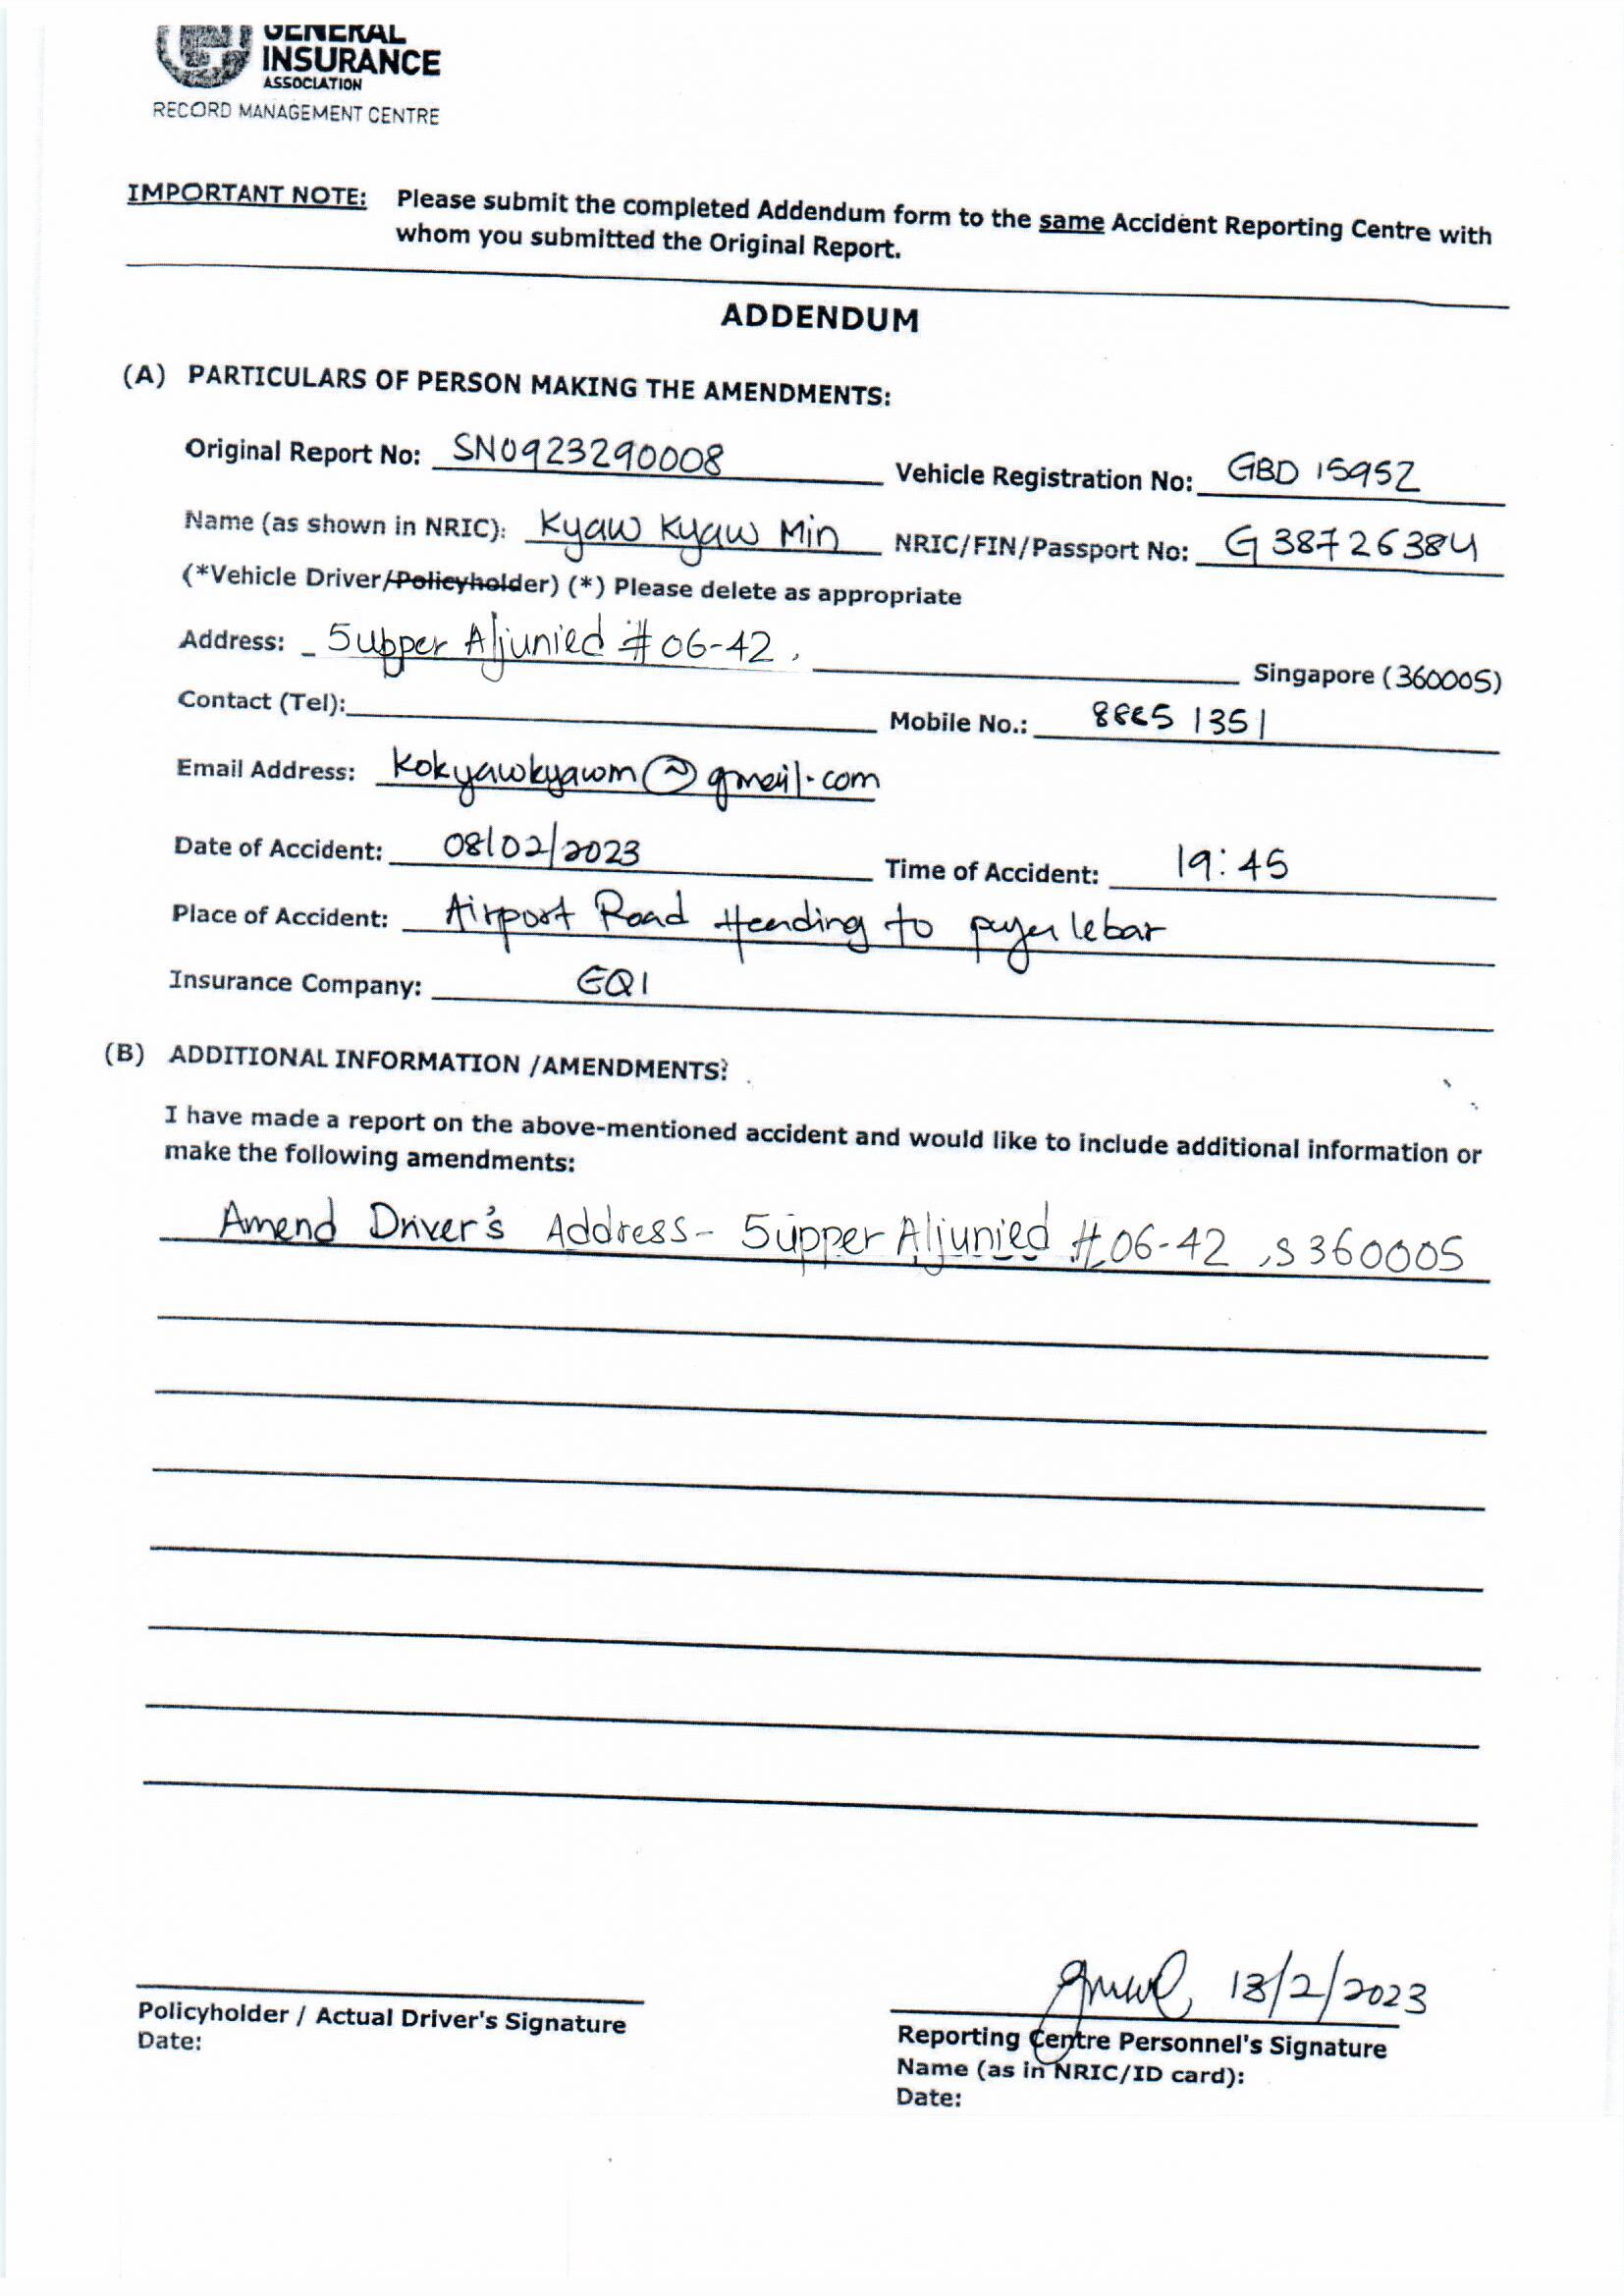 GENERAL
INSURANCE
ASSOCIATION
RECORD MANAGEMENT CENTRE
IMPORTANT NOTE: Please submit the completed Addendum form to the same Accident Reporting Centre with
whom you submitted the Original Report.
ADDENDUM
(A) PARTICULARS OF PERSON MAKING THE AMENDMENTS:
Original Report No: SN0923290008 Vehicle Registration No: GBD 1595Z
Name (as shown in NRIC): Kyaw Kyaw Min NRIC/FIN/Passport No: G3872638U
(*Vehicle Driver/Policyholder) (*) Please delete as appropriate
Address: 5 upper Aljunied #06-42, Singapore (360005)
Contact (Tel): Mobile No.: 8865 1351
Email Address: kokyawkyawm@gmail.com
Date of Accident: 08/02/2023 Time of Accident: 19:45
Place of Accident: Airport Road Heading to payer lebar
Insurance Company: EQI
(B) ADDITIONAL INFORMATION /AMENDMENTS:
I have made a report on the above-mentioned accident and would like to include additional information or
make the following amendments:
Amend Driver's Address- 5 upper Aljunied #06-42, S360005
13/2/2023
Policyholder / Actual Driver's Signature
Date:
Reporting Centre Personnel's Signature
Name (as in NRIC/ID card):
Date: